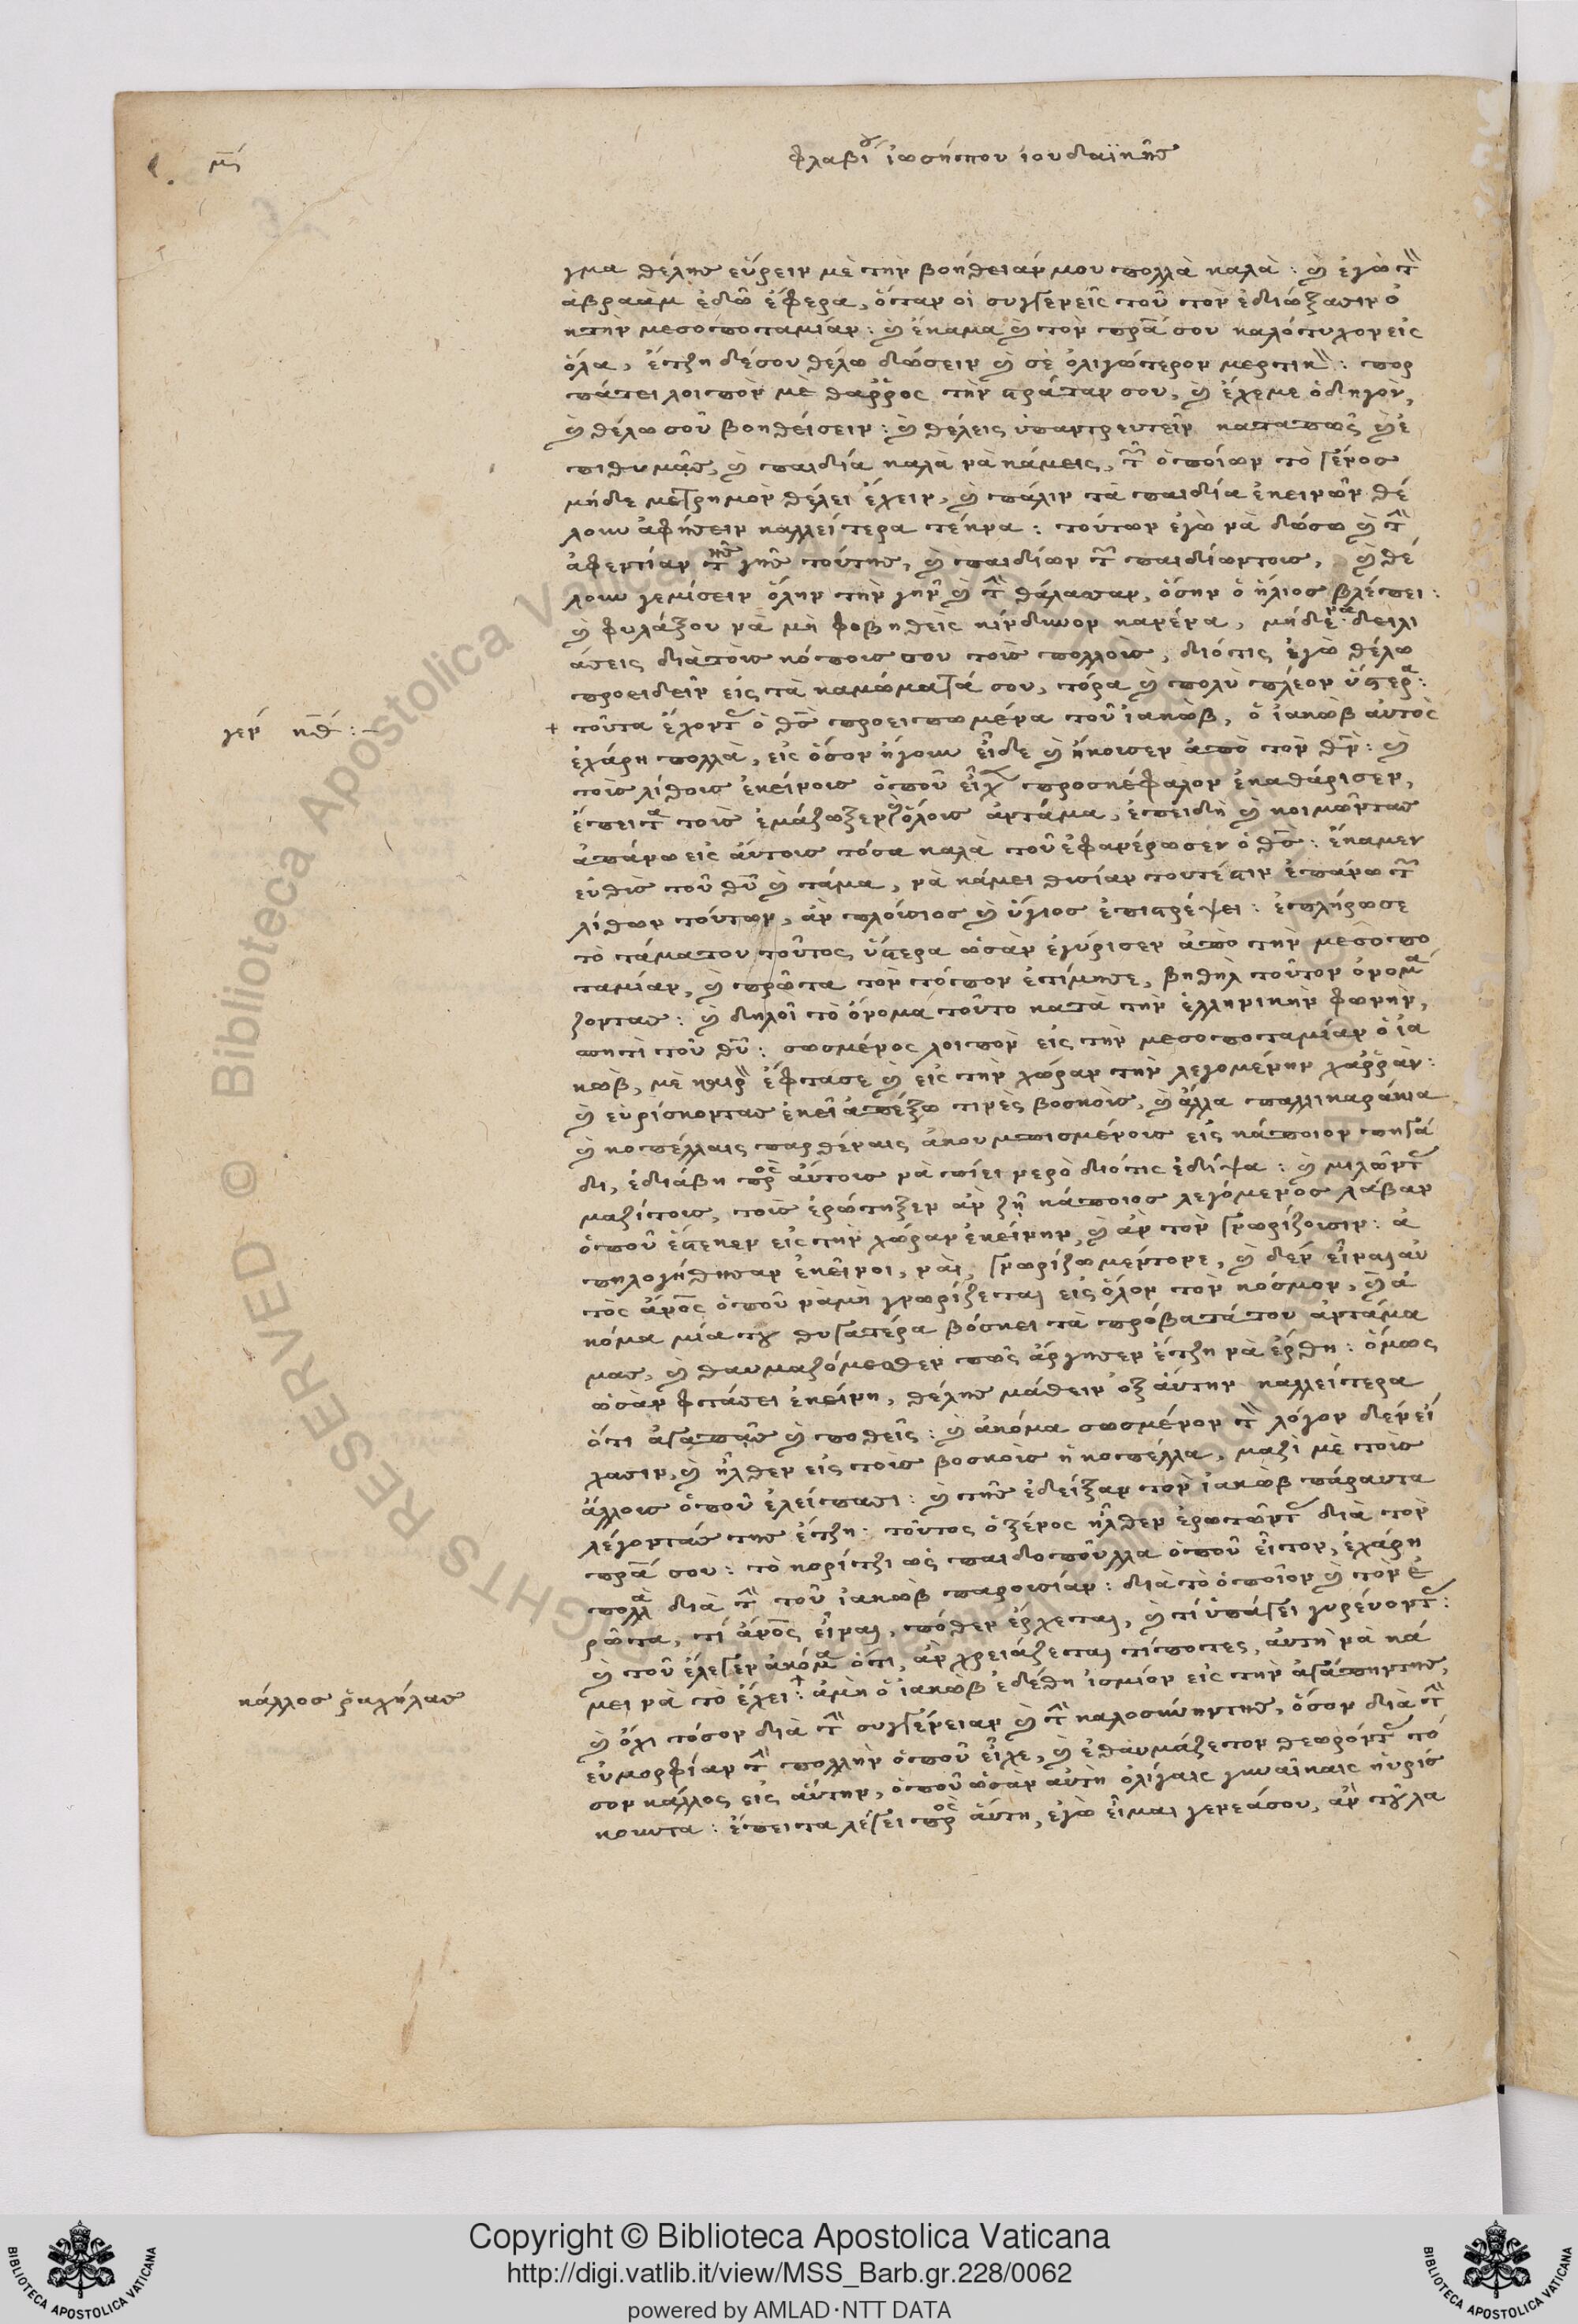 φλαβίου ἰωσήπου ἰουδαϊκῆς
γμα θέλης εὕρειν μὲ τὴν βοήθειάν μου πολλὰ καλὰ : καὶ ἐγὼ τὸν
ἀβραὰμ ἐδῶ ἔφερα, ὅταν οἱ συγγενεῖς τοῦ τὸν ἐδιώξασιν ἐ
κ τὴν μεσοποταμίαν : καὶ ἔκαμα καὶ τὸν πρᾶ σου καλότυχον εἰς
ὅλα, ἔτζη δέσου θέλω δώσειν καὶ σὲ ὀλιγώτερον μερτικὸν : πορ
πάτει λοιπὸν μὲ θάρρος τὴν στράταν σου, καὶ ἔχεμε ὁδηγὸν,
καὶ θέλω σοῦ βοηθείσειν : καὶ θέλεις ὑπαντρευτεῖν καταπῶς καὶ ἐ
πιθυμᾶς, καὶ παιδία καλὰ νὰ κάμεις, τῶν ὁποίων τὸ γένος
μήδε μετρημὸν θέλει ἔχειν, καὶ πάλιν τὰ παιδία ἐκεινῶν θέ
λουν ἀφήσειν καλλείτερα τέκνα : τούτων ἐγὼ νὰ δώσω καὶ τὴν
ἀφεντίαν τῆς γῆς τούτης, καὶ παιδίων τῶν παιδίωντους, καὶ θέ
λουν γεμίσειν ὅλην τὴν γῆν καὶ τὴν θάλασσαν, ὅσην ὁ ἥλιος βλέπει :
καὶ φυλάξου νὰ μὴ φοβηθεὶς κίνδυνον κανένα, μήδε νὰ δειλι
άσεις διὰ τοὺς κόπους σου τοὺς πολλοὺς, διότις ἐγὼ θέλω
προειδεῖν εἰς τὰ καμώματά σου, τόρα καὶ πολυ πλέον ὕστερα :
γεν κθ :
+ τοῦτα ἔχοντας ὁ θς προειπωμένα τοῦ ἰακὼβ, ὁ ἰακὼβ αὐτὸς
ἐχάρη πολλὰ, εἰς ὅσον ἤγουν εἶδε καὶ ἤκουσεν ἀπὸ τὸν θν : καὶ
τοὺς λίθους ἐκείνους ὁποῦ εἶχε προσκέφαλον ἐκαθάρισεν,
ἔπειτα τοὺς ἐμάζωξεν ὅλους ἀντάμα, ἐπειδὴ καὶ κοιμῶντας
ἀπάνω εἰς αὐτους τόσα καλὰ τοῦ ἐφανέρωσεν ὁ θς : ἔκαμεν
εὐθὺς τοῦ θῦ καὶ τάμα, νὰ κάμει θυσίαν τουτέστιν ἐπάνω τῶν
λίθων τούτων, ἀν πλούσιος καὶ ὕγιος ἐπιστρέψει : ἐπλήρωσε
τὸ τάματου τοῦτος ὕστερα ὡσὰν ἐγύρισεν ἀπὸ τὴν μεσοπο
ταμίαν, καὶ πρῶτα τὸν τόπον ἐτίμησε, βηθὴλ τοῦτον ὀνομὰ
ζοντας : καὶ δηλοῖ τὸ ὄνομα τοῦτο κατὰ τὴν ἑλληνικὴν φωνὴν,
σπητὶ τοῦ θῦ : σωσμένος λοιπὸν εἰς τὴν μεσοποταμίαν ὁ ἰα
κὼβ, μὲ καιρὸν ἔφτασε καὶ εἰς τὴν χώραν τὴν λεγομένην χαρρὰν :
καὶ εὑρίσκοντας ἐκεῖ ἀπέξω τινὲς βοσκοὺς, καὶ ἄλλα παλλικαράκια
καὶ κοπέλλαις παρθέναις ἀκουμπισμένους εἰς κάποιον πηγά
δι, ἐδιάβη πρὸς αὐτους νὰ πίει νερὸ διότις ἐδίψα : καὶ μιλῶντας
μαζίτους, τοὺς ἐρώτηξεν ἀν ζῆ κάποιος λεγόμενος λάβαν
ὁποῦ ἔστεκεν εἰς τὴν χώραν ἐκείνην, καὶ ἀν τὸν γνωρίζουσιν : ἀ
πηλογήθησαν ἐκεῖνοι, ναὶ, γνωρίζωμέντονε, καὶ δὲν εἶναι αὐ
τὸς ἄνος ὁποῦ νὰμὴ γνωρίζεται εἰς ὅλον τὸν κόσμον, καὶ ἀ
κόμα μία του θυγατέρα βόσκει τὰ πρόβατά του ἀντάμα
μας, καὶ θαυμαζόμεσθεν πῶς ἄργησεν ἔτζη νὰ ἔρθη : ὅμως
ὡσὰν φτάσει ἐκείνη, θέλης μάθειν ὀξ αὐτην καλλείτερα
ὅτι ἀγαπᾶς καὶ ποθεῖς : καὶ ἀκόμα σωσμένον τὸν λόγον δὲν εἴ
χασιν, καὶ ἦλθεν εἰς τοὺς βοσκοὺς ἡ κοπέλλα, μαζὶ μὲ τοὺς
ἄλλους ὁποῦ ἐλείπασι : καὶ τῆς ἐδείξαν τὸν ἰακὼβ πάραυτα
λέγοντάς της ἔτζη : τοῦτος ὁ ξένος ἦλθεν ἐρωτῶντας διὰ τὸν
πρᾶ σου : τὸ κορίτζι ὡς παιδοποῦλλα ὁποῦ εἶτον, ἐχάρη
πολλὰ διὰ τὴν τοῦ ἰακὼβ παρουσίαν : διὰ τὸ ὁποῖον καὶ τὸν ἐ
ρῶτα, τί ἄνος εἶναι, πόθεν ἔρχεται, καὶ τί ὑπάγει γυρεύοντας :
καὶ τοῦ ἔλεγεν ἀκόμα ὅτι, ἀν χρειάζεται τίποτες, αὐτὴ νὰ κά
κάλλος ῥαχήλας
μει νὰ τὸ ἔχει :+ ἀμὴ ὁ ἰακὼβ ἐδέθη ἰσμίον εἰς τὴν ἀγάπηντης,
καὶ ὄχι τόσον διὰ τὴν συγγένειαν καὶ τὴν καλοσύνηντης, ὅσον διὰ τὴν
εὐμορφίαν τὴν πολλὴν ὁποῦ εἶχε, καὶ ἐθαυμάζετον θεωρόντας τό
σον κάλλος εἰς αὐτην, ὁποῦ ὡσὰν αὐτὴ ὀλίγαις γυναῖκαις ηὑρίσ
κουντα : ἔπειτα λέγει πρὸς αὐτη, ἐγὼ εἶμαι γενεάσου, ἀν τοῦ λα
Copyright © Biblioteca Apostolica Vaticana
http://digi.vatlib.it/view/MSS_Barb.gr.228/0062
powered by AMLAD·NTT DATA
BIBLIOTECA APOSTOLICA VATICANA
BIBLIOTECA APOSTOLICA VATICANA